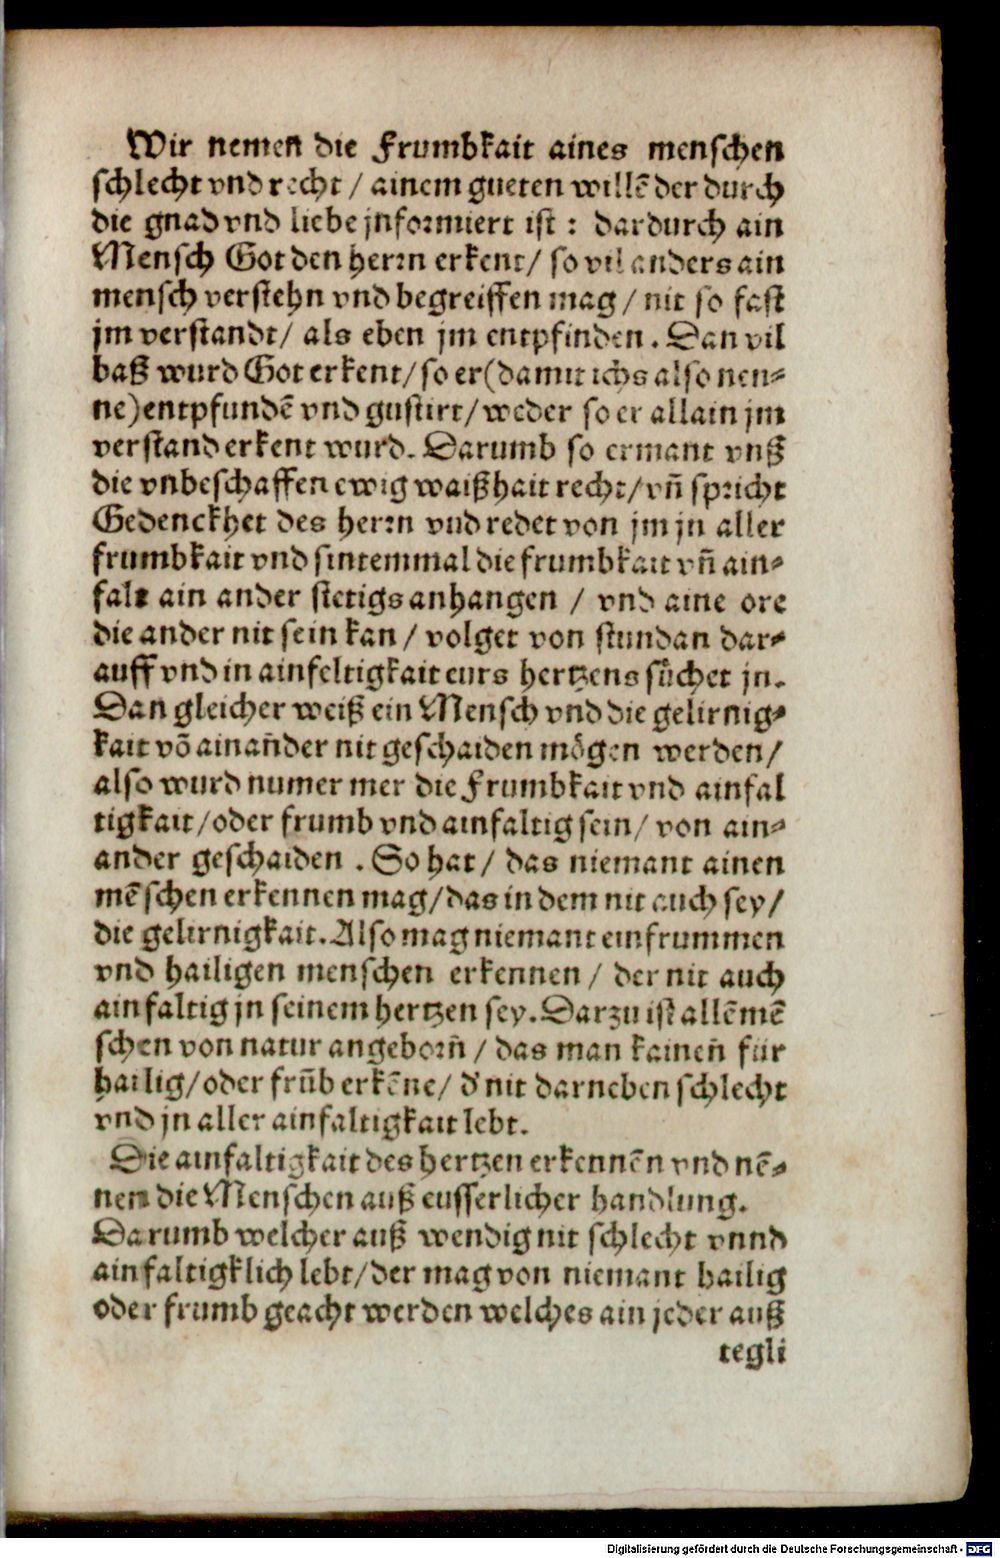 Wir nemen die Frumbkait aines menschen
schlecht vnd recht / ainem gueten willē der durch
die gnad vnd liebe jnformiert ist : dardurch ain
Mensch Got den herrn erkent / so vil anders ain
mensch verstehn vnd begreiffen mag / nit so fast
jm verstandt / als eben jm entpfinden . Dan vil
baß wurd Got erkent / so er (damit ichs also nen⸗
ne) entpfundē vnd gustirt / weder so er allain jm
verstand erkent wurd. Darumb so ermant vnß
die vnbeschaffen ewig waißhait recht / vñ spricht
Gedenckhet des herrn vnd redet von jm jn aller
frumbkait vnd sintemmal die frumbkait vñ ain⸗
falt ain ander stetigs anhangen / vnd aine ore
die ander nit sein kan / volget von stundan dar⸗
auff vnd in ainfeltigkait eurs hertzens sůchet jn.
Dan gleicher weiß ein Mensch vnd die gelirnig⸗
kait vō ainañder nit geschaiden mögen werden /
also wurd numer mer die Frumbkait vnd ainfal
tigkait / oder frumb vnd ainfaltig sein / von ain⸗
ander geschaiden . So hat / das niemant ainen
mēschen erkennen mag / das in dem nit auch sey /
die gelirnigkait. Also mag niemant ein frummen
vnd hailigen menschen erkennen / der nit auch
ainfaltig jn seinem hertzen sey. Darzu ist allē mē
schen von natur angeborñ / das man kaineñ für
hailig / oder frūb erkēne / d' nit darneben schlecht
vnd jn aller ainfaltigkait lebt.
Die ainfaltigkait des hertzen erkennēn vnd nē⸗
nen die Menschen auß eusserlicher handlung.
Darumb welcher auß wendig nit schlecht vnnd
ainfaltigklich lebt / der mag von niemant hailig
oder frumb geacht werden welches ain jeder auß
tegli
Digitalisierung gefördert durch die Deutsche Forschungsgemeinschaft - DFG